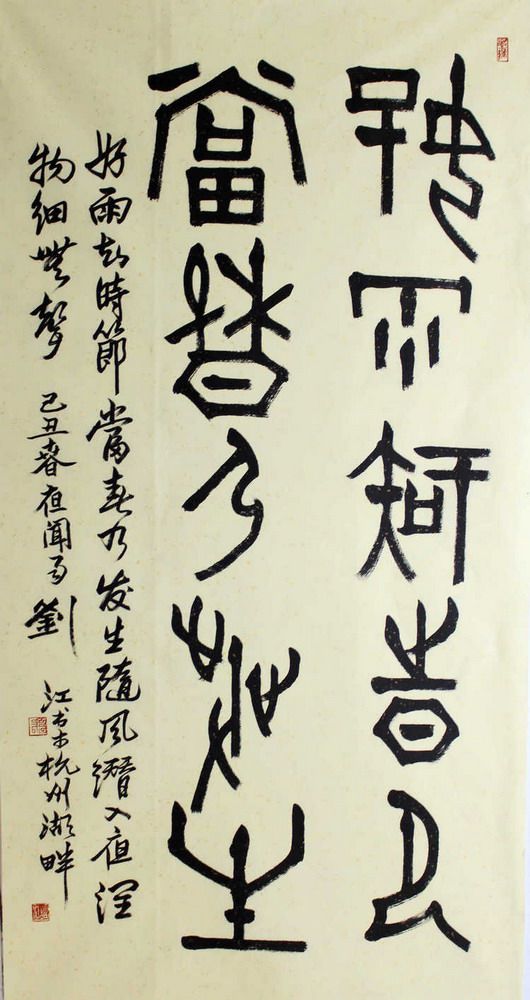 好雨知時節
當春乃發生
好雨知時節當春乃发生隨風潛入夜潤
物細無聲 己丑春夜聞雨 劉江书於杭州湖畔